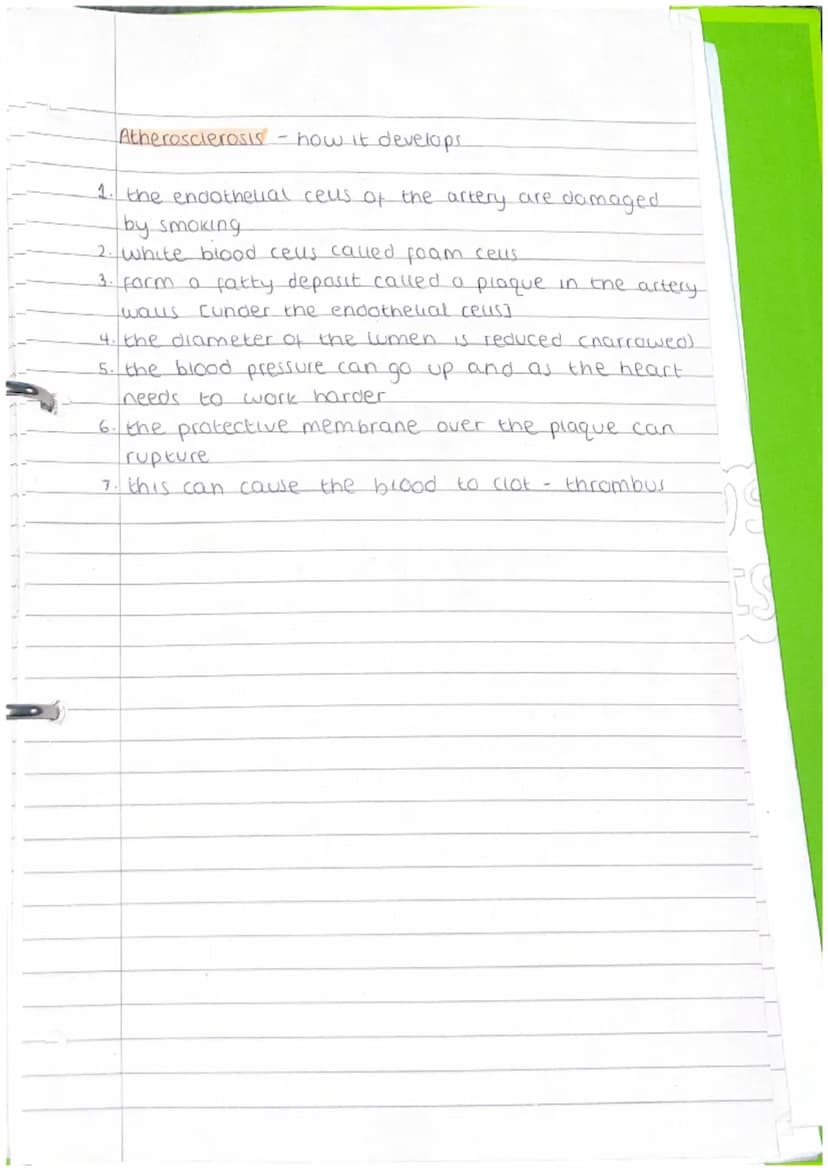 Atherosclerosis - how it develops
1. the endothelial cells of the artery are damaged
by smoking
2. white blood cells called foam cells
3. form a fatty deposit called a plaque in the artery
walls [under the endothelial cells]
4. the diameter of the lumen is reduced (narrowed)
5. the blood pressure can go up and as the heart
needs to work harder
6. the protective membrane over the plaque can
rupture
7. this can cause the blood to clot - thrombus